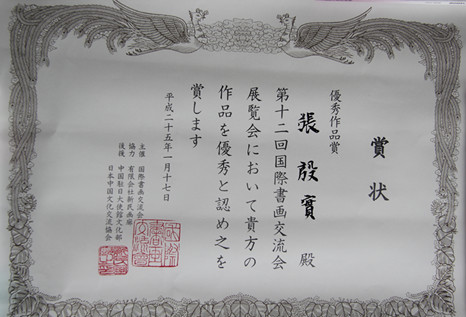 賞状
優秀作品賞
張殷實 殿
第十二回国際書画交流会
展覧会において貴方の
作品を優秀と認め之を
賞します
平成二十五年一月十七日
主催 国際書画交流会
協力 有限会社新民画廊
後後 中国駐日大使館文化部
日本中国文化交流協会